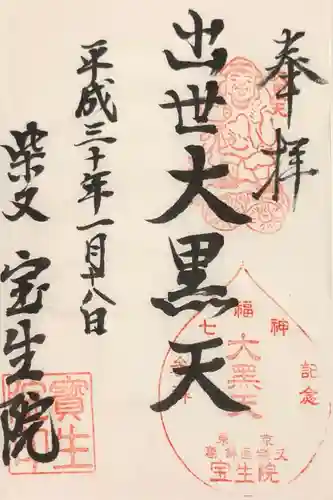 奉拝
出世大黒天
平成三十年一月十八日
柴又 宝生院
福
七 神
大黒天 記念
宝生院
寶生